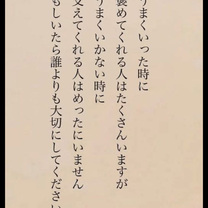 うまくいった時に
褒めてくれる人はたくさんいますが
うまくいかない時に
支えてくれる人はめったにいません
もしいたら誰よりも大切にしてください